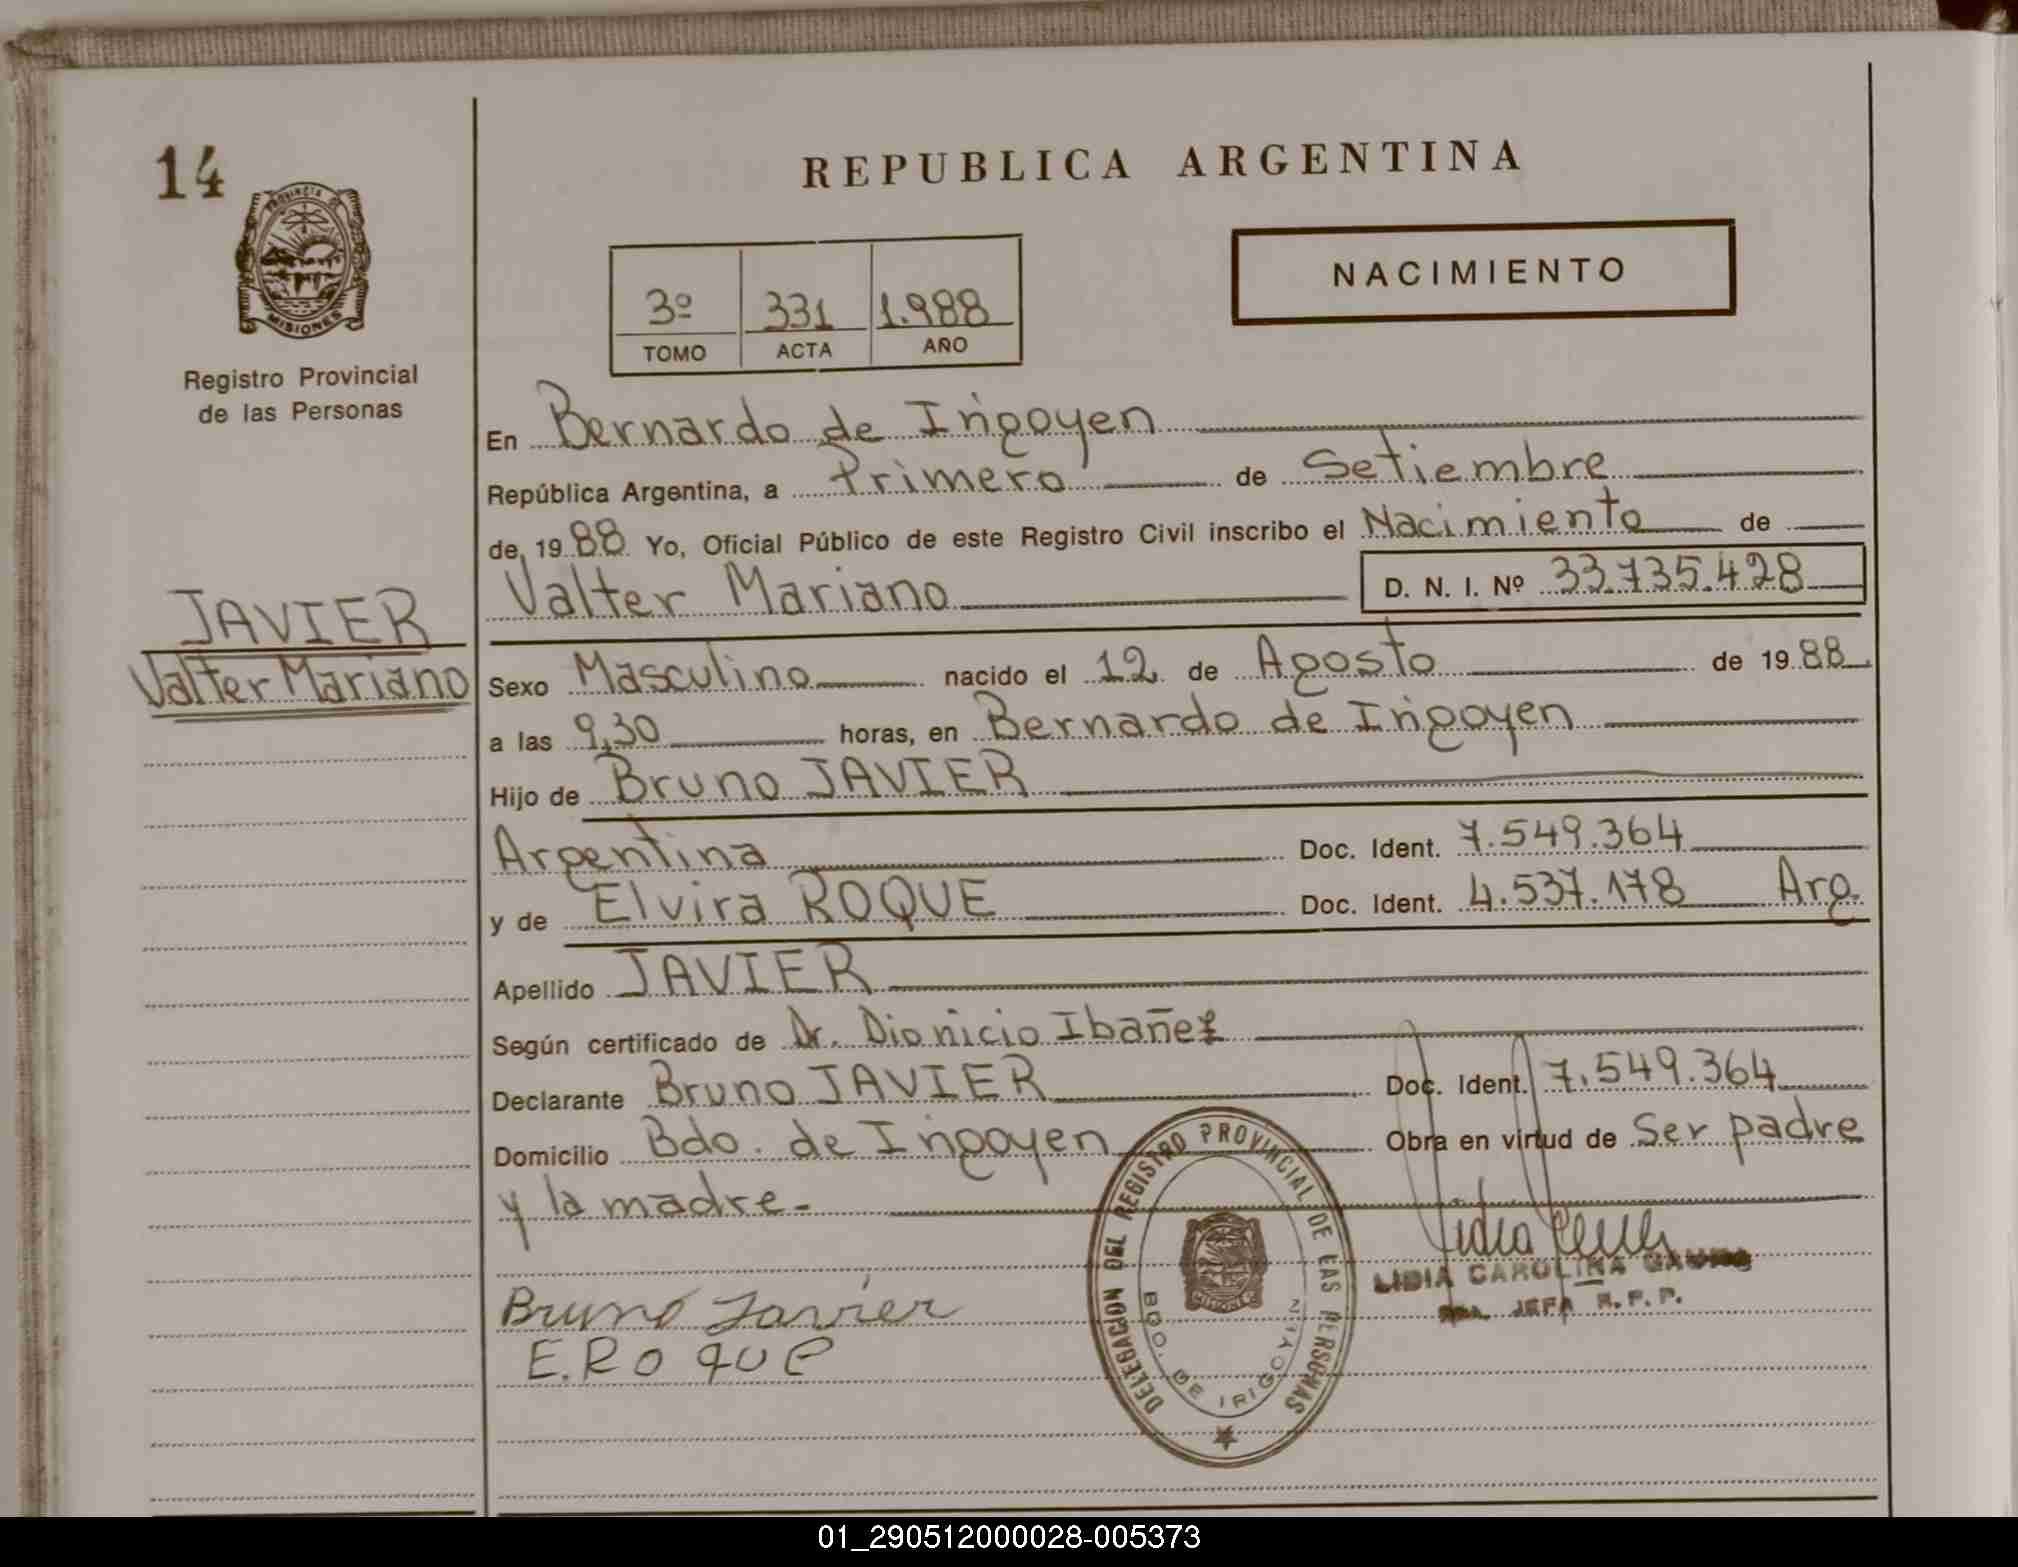 14
REPUBLICA ARGENTINA
PROVINCIA DE
MISIONES
NACIMIENTO
3º 331 1.988
TOMO ACTA AÑO
Registro Provincial
de las Personas
En Bernardo de Irigoyen
República Argentina, a Primero de Setiembre
de 19 88 Yo, Oficial Público de este Registro Civil inscribo el Nacimiento de
Valter Mariano D. N. I. Nº 33.735.428
JAVIER
Valter Mariano
Sexo Masculino nacido el 12 de Agosto de 19 88
a las 9,30 horas, en Bernardo de Irigoyen
Hijo de Bruno JAVIER
Argentina Doc. Ident. 7.549.364
y de Elvira ROQUE Doc. Ident. 4.537.178 Arg
Apellido JAVIER
Según certificado de Dr. Dionicio Ibañez
Declarante Bruno JAVIER Doc. Ident. 7.549.364
Domicilio Bdo. de Irigoyen Obra en virtud de Ser padre
y la madre.
DELEGACION DEL REGISTRO PROVINCIAL DE LAS PERSONAS
BDO. DE IRIGOYEN
MISIONES
LIDIA CAROLINA
JEFA R.P.P.
Bruno Javier
E. ROque
01_290512000028-005373